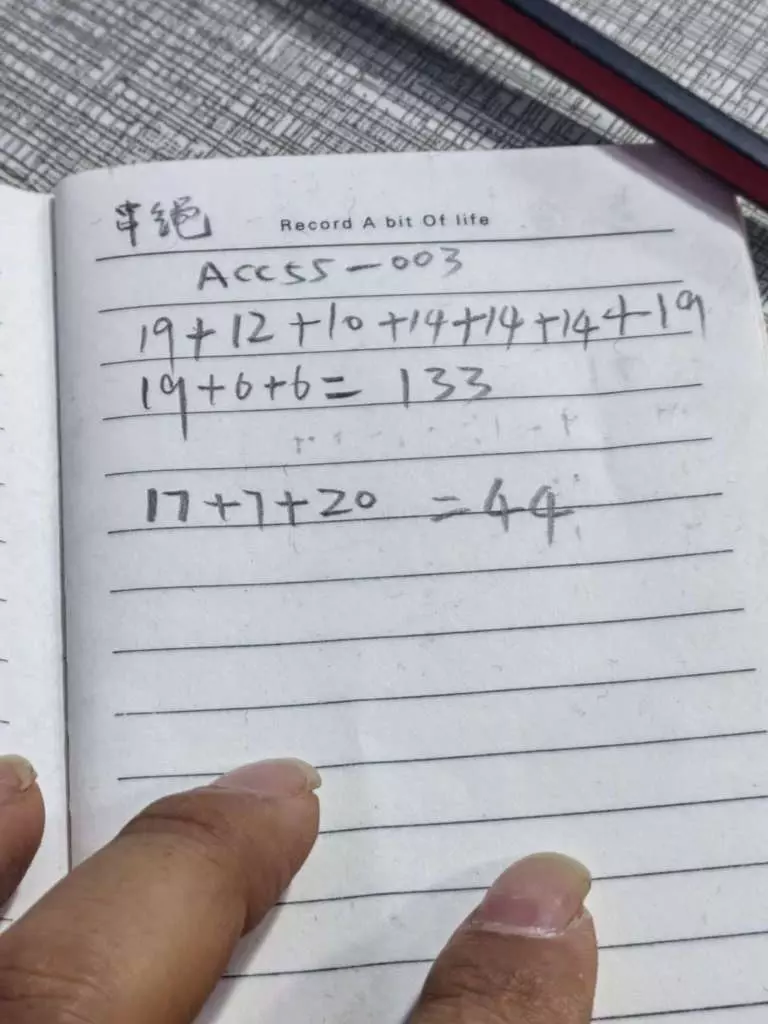 串绳 Record A bit Of life
ACC55-003
19+12+10+14+14+14+19
19+6+6= 133
17+7+20 =44